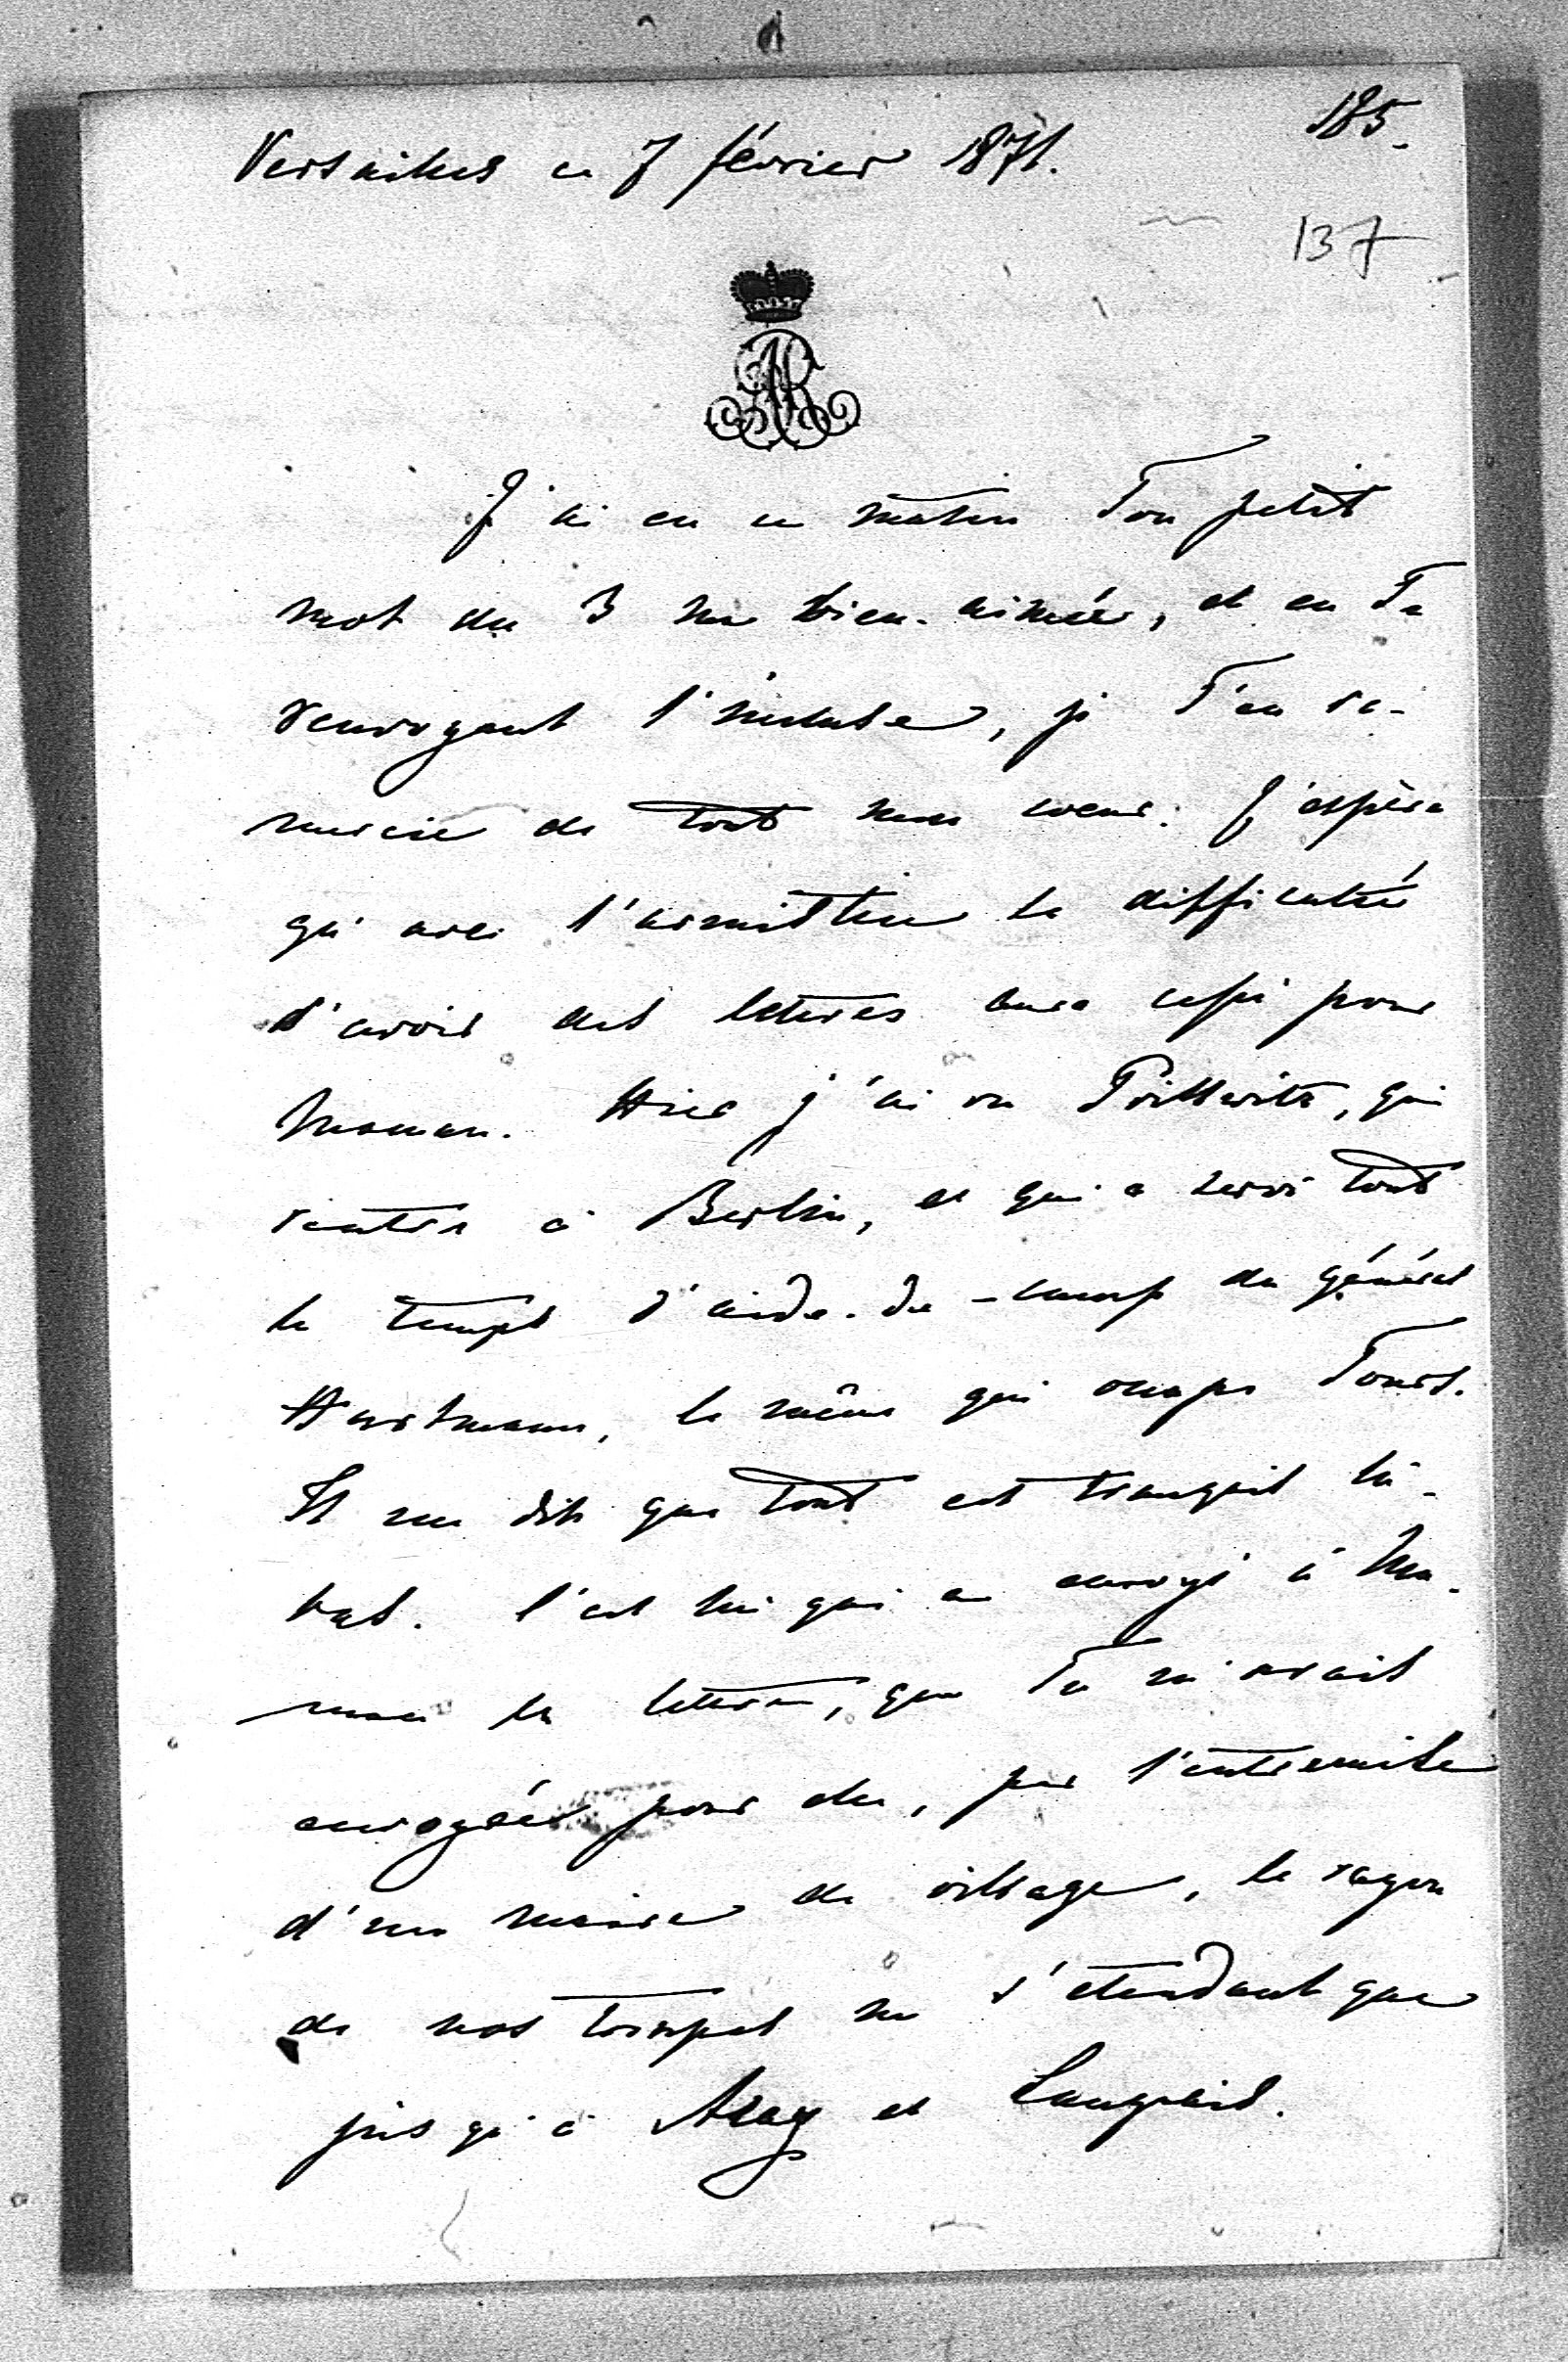 185.
Versailles ce 7 février 1871.
137
J'ai eu ce matin Ton petit
mot du 3 ma bien-aimée, et en Te
renvoyant l'incluse, je T'en re-
mercie de tout mon coeur. J'espère
qu'avec l'armistice la difficulté
d'avoir des lettres aura cessé pour
Maman. Hier j'ai vu Prittwitz, qui
rentre à Berlin, et qui a servi tout
le temps d'aide-de-camp du général
Hartmann, le même qui occupe Tours.
Il me dit que tout est tranquil là-
bas. C'est lui qui a envoyé à Ma-
man la lettre, que Tu m'avais
envoyée pour elle, par l'entremise
d'un maire de village, le rayon
de nos troupes ne s'étendant que
jusqu'à Azay et Langeais.